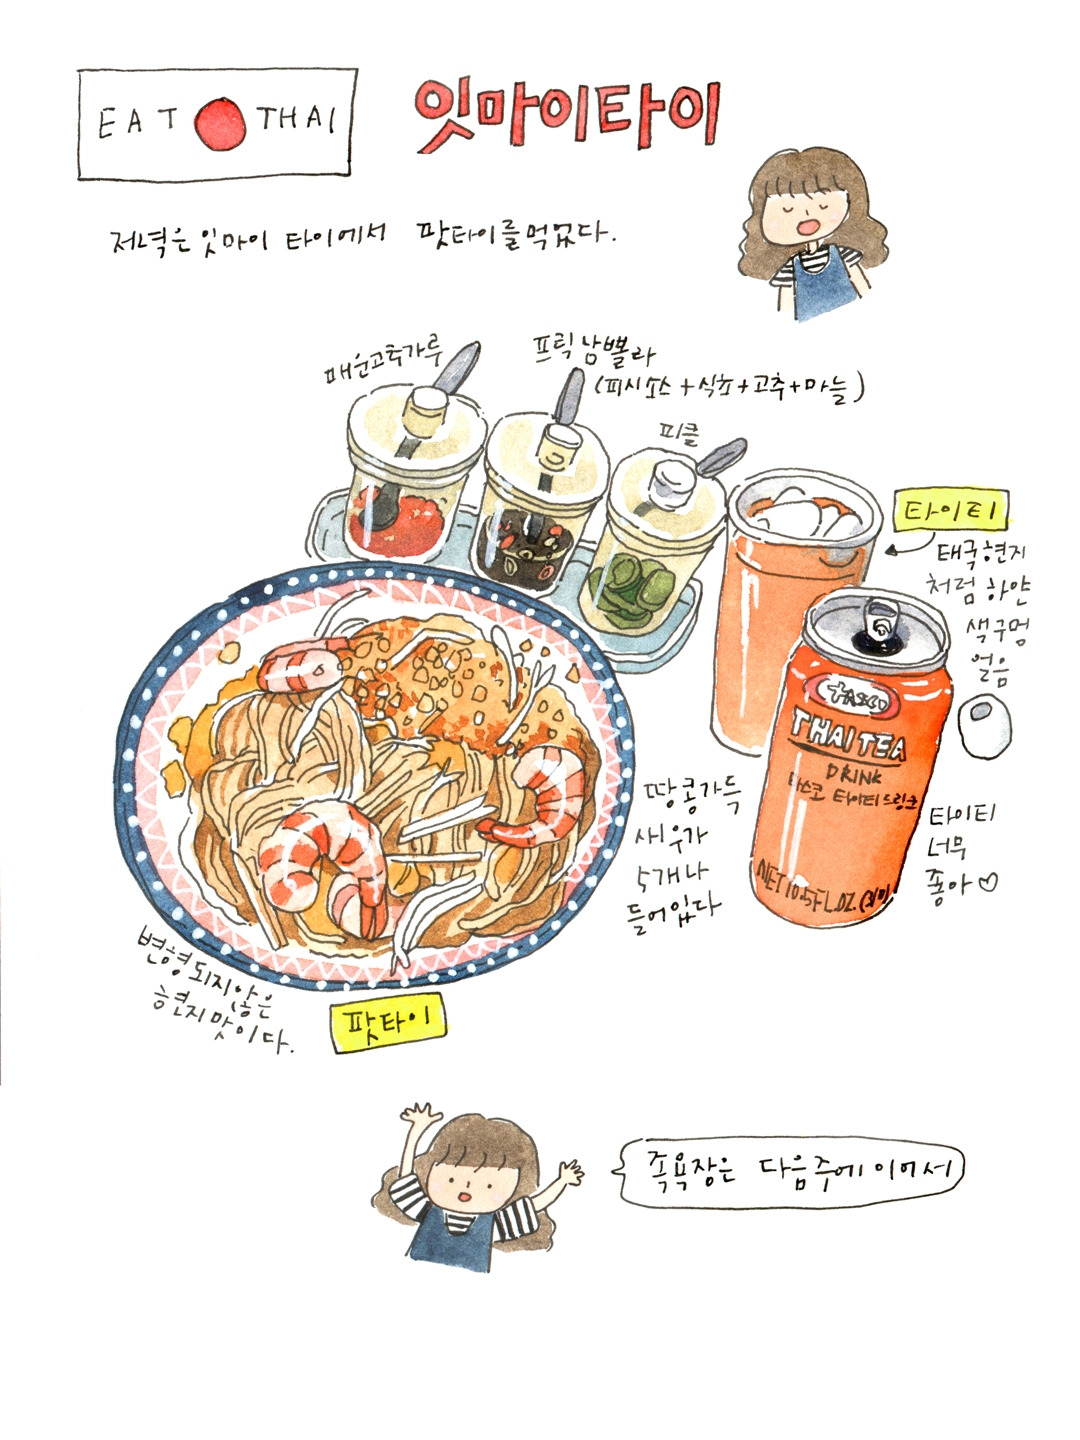 EAT THAI
잇마이타이
저녁은 잇마이 타이에서 팟타이를 먹었다.
매운고추가루
프릭남뽈라
(피시소스+식초+고추+마늘)
피클
타이티
태국현지
처럼 하얀
색구멍
얼음
TASCO
THAI TEA
DRINK
타스코 타이티드링크
NET 10.5FL.OZ.
땅콩가득
새우가
5개나
들어있다
타이티
너무
좋아♡
변형되지않은
현지맛이다.
팟타이
족욕장은 다음주에 이어서